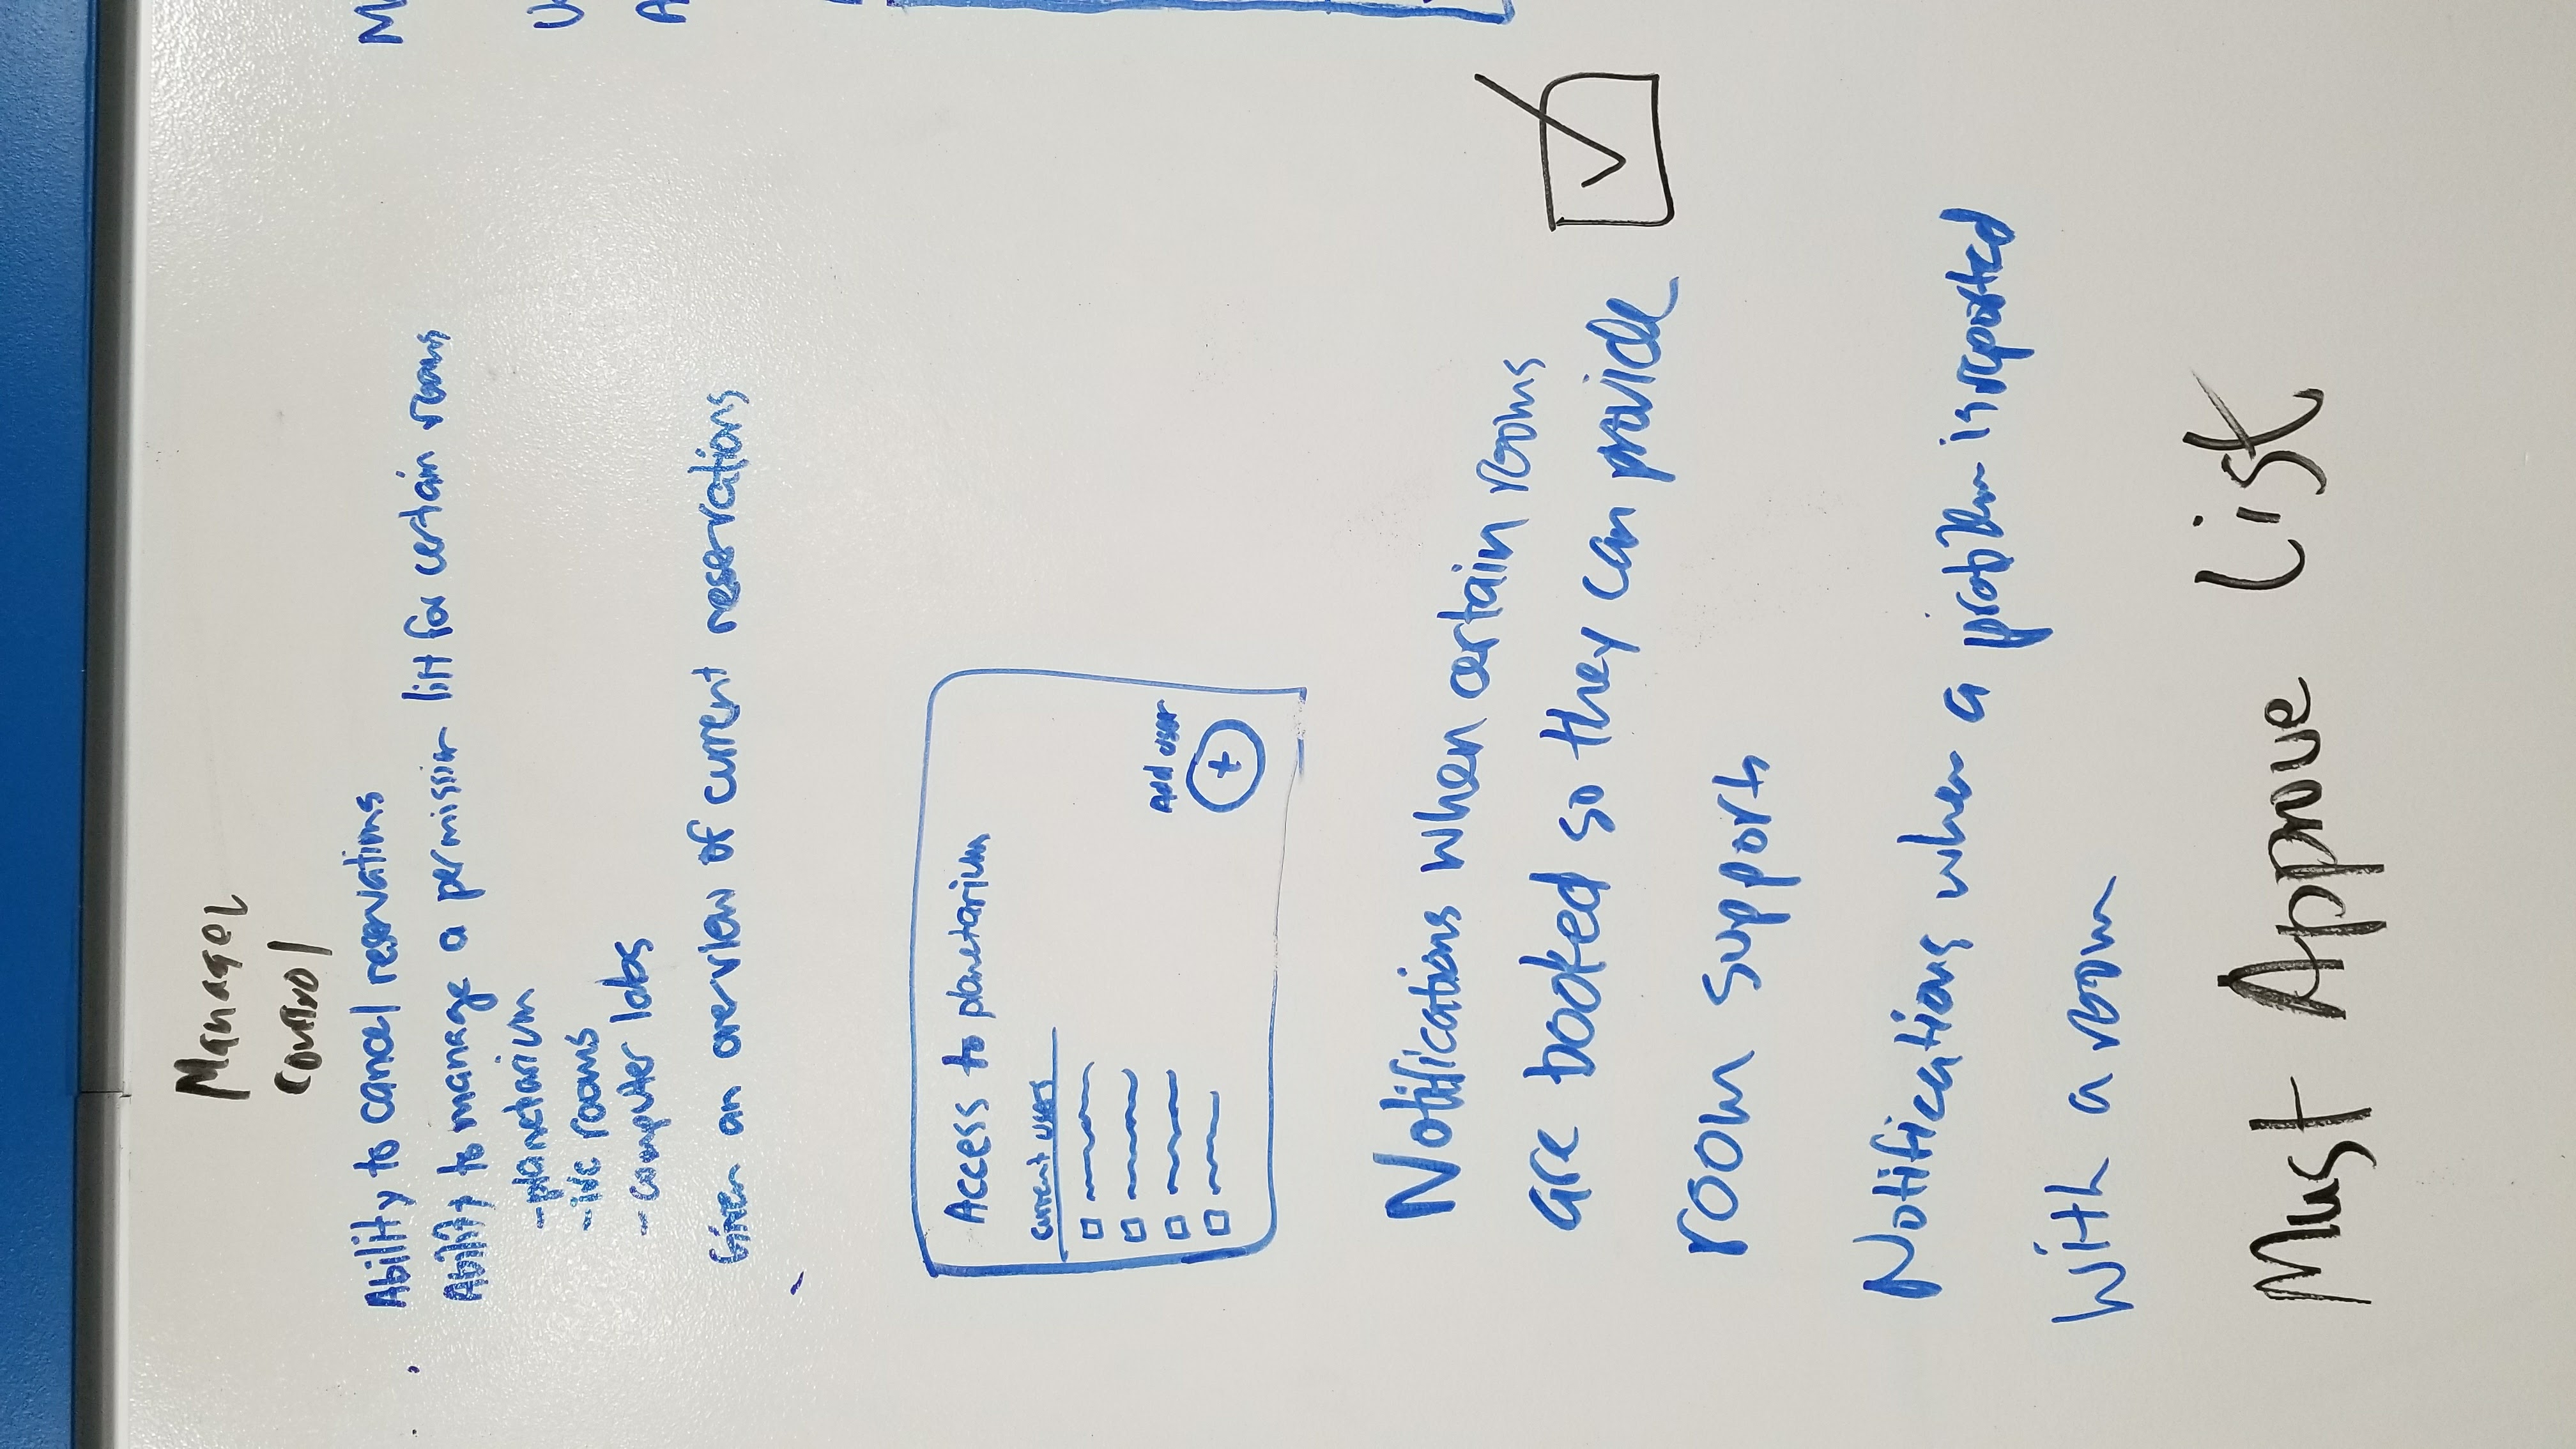 Manager
Control
Ability to cancel reservations
Ability to manage a permission list for certain rooms
-planetarium
-ivc rooms
-computer labs
Given an overview of current reservations
Access to planetarium
current users
Add user
+
Notifications when certain rooms
are booked so they can provide
room supports
Notifications when a problem is reported
with a room
Must Approve List